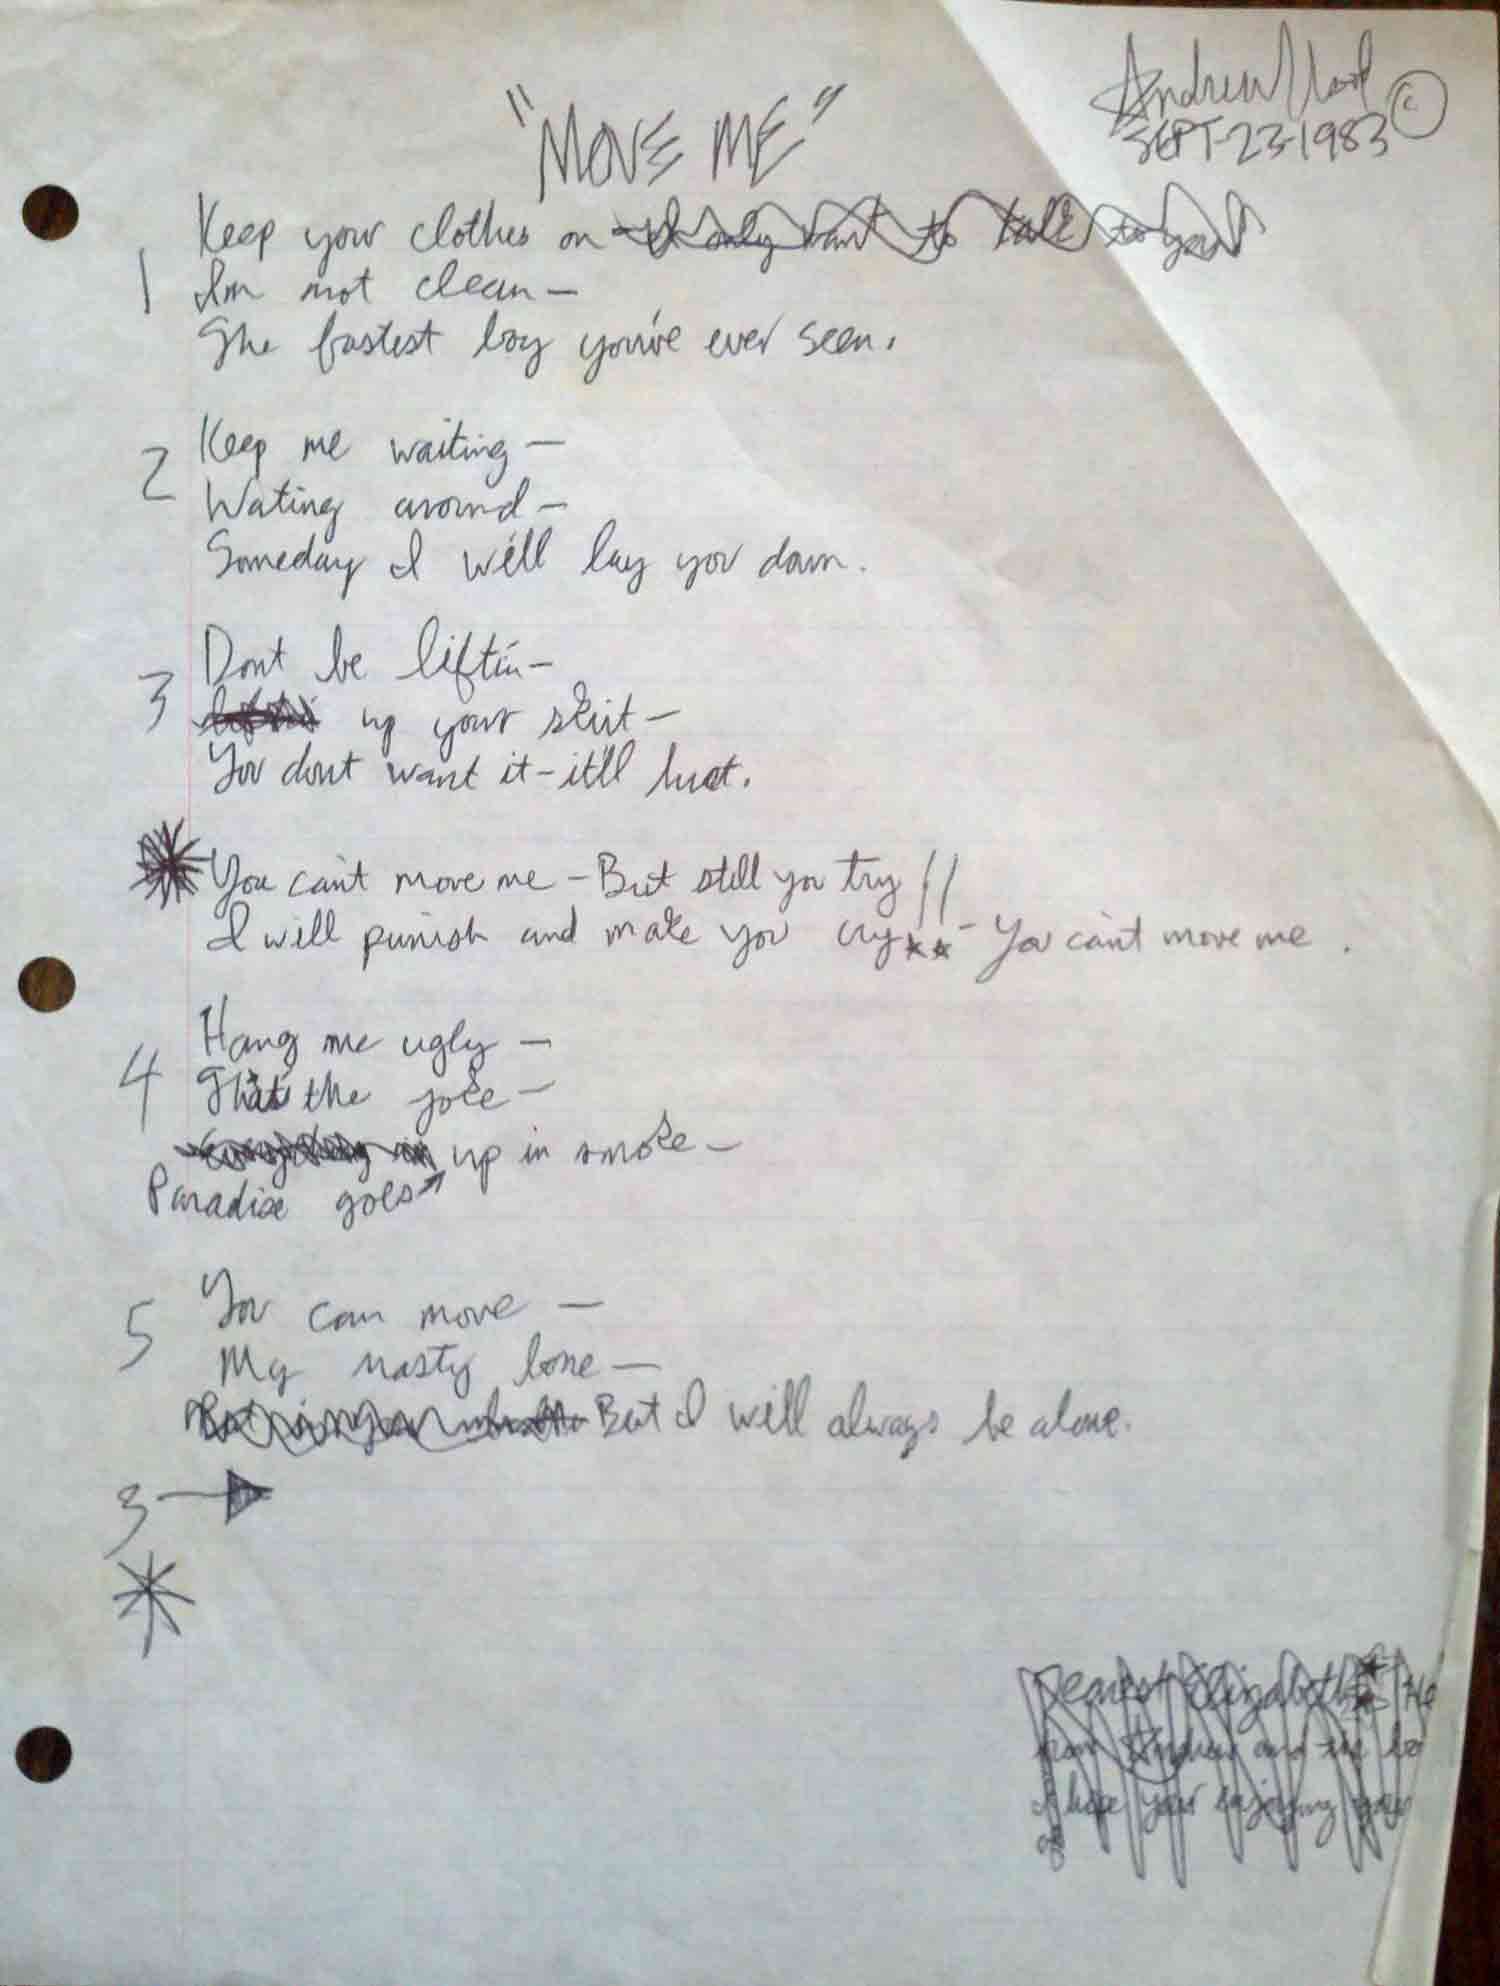 Andrew Wood ©
SEPT-23-1983
"MOVE ME"
Keep your clothes on I only want to talk to you
1 I'm not clean —
The fastest boy you've ever seen.
Keep me waiting —
2 Wating around —
Someday I will lay you down.
Dont be liftin —
3 up your skirt —
You dont want it - it'll hurt.
You can't move me - But still you try !!
I will punish and make you cry ** - You can't move me .
Hang me ugly —
4 That's the joke —
up in smoke —
Paradise goes
5 You can move —
My nasty bone —
But I will always be alone.
3
Dearest Elizabeth He
from Andrew and the bo
I hope your enjoying your